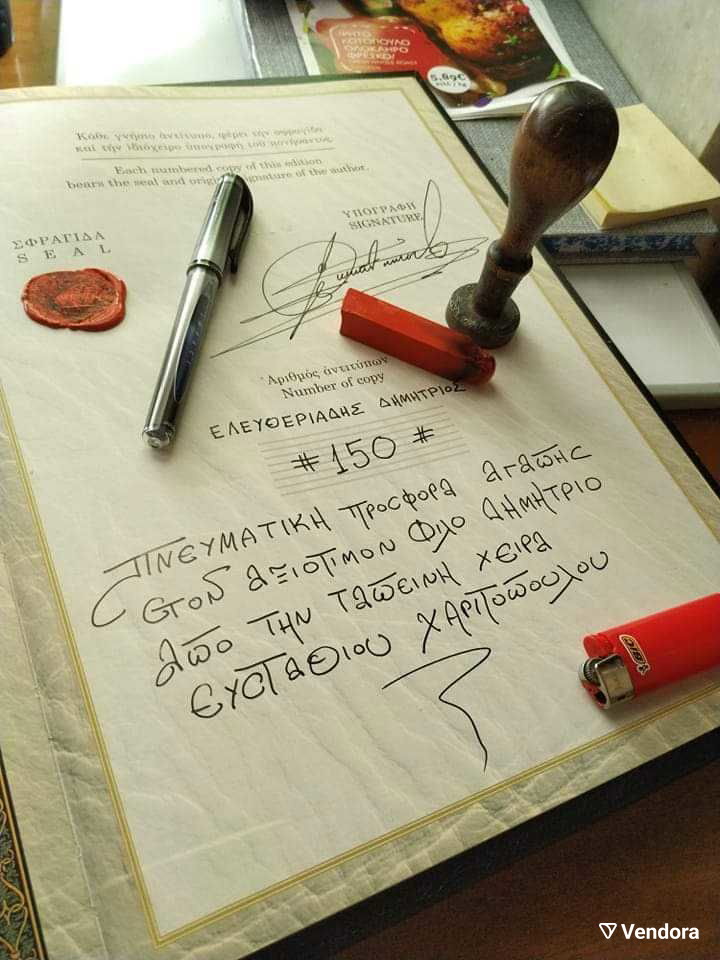 ΨΗΤΟ
ΚΟΤΟΠΟΥΛΟ
ΟΛΟΚΛΗΡΟ
5,89€
Κάθε γνήσιο ἀντίτυπο, φέρει τήν σφραγίδα
καί τήν ἰδιόχειρο ὑπογραφή τοῦ πονήσαντος.
Each numbered copy of this edition
bears the seal and original signature of the author.
ΣΦΡΑΓΙΔΑ
SEAL
ΥΠΟΓΡΑΦΗ
SIGNATURE
Ἀριθμός ἀντιτύπων
Number of copy
ΕΛΕΥΘΕΡΙΑΔΗΣ ΔΗΜΗΤΡΙΟΣ
# 150 #
ΠΝΕΥΜΑΤΙΚΗ ΠΡΟCΦΟΡΑ ΑΓΑΠΗC
CΤΟΝ ΑΞΙΟΤΙΜΟΝ ΦΙΛΟ ΔΗΜΗΤΡΙΟ
ΑΠΟ ΤΗΝ ΤΑΠΕΙΝΗ ΧΕΙΡΑ
ΕΥCΤΑΘΙΟΥ ΧΑΡΙΤΟΠΟΥΛΟΥ
BIC
Vendora